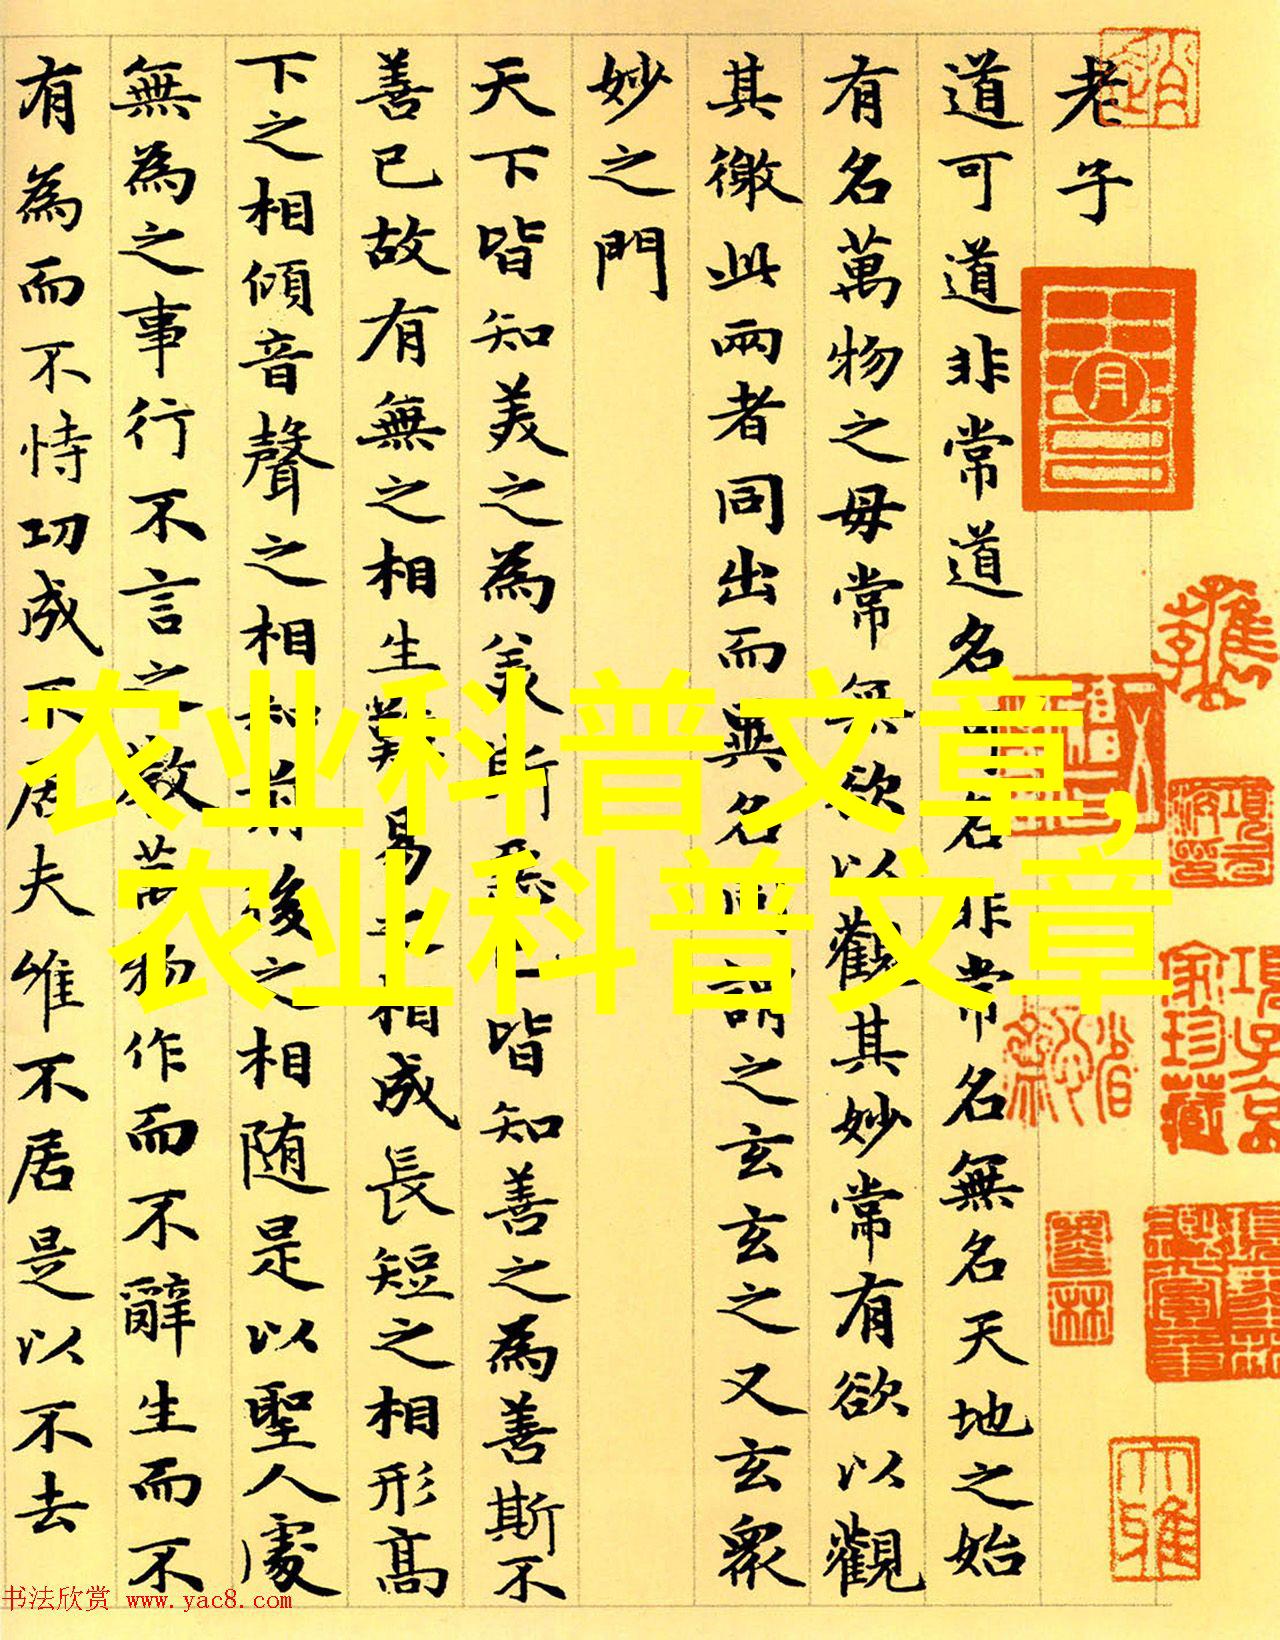 老子
道可道非常道名可名非常名無名天地之始
有名萬物之毋常無欲以觀其妙常有欲以觀
其徼此兩者同出而異名同謂之玄玄之又玄衆
妙之門
天下皆知美之為美斯惡已皆知善之為善斯不
善已故有無之相生難易之相成長短之相形高
下之相傾音聲之相和前後之相随是以聖人處
無為之事行不言之教萬物作而不辭生而不
有為而不恃功成不居夫唯不居是以不去
农业科普文章,
农业科普文章
項子京家珍藏
书法欣赏 www.yac8.com